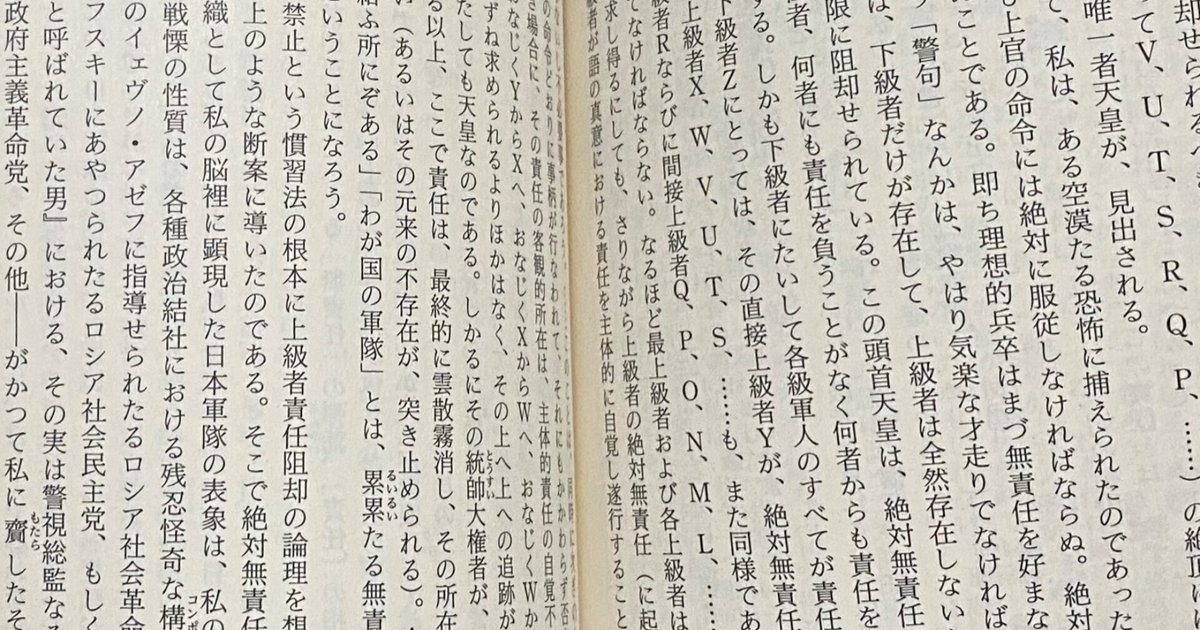 却せられる
てV、U、T、S、R、Q、P、……)の絶頂に
唯一者天皇が、見出される。
て、私は、ある空漠たる恐怖に捕えられたのであった
も上官の命令には絶対に服従しなければならぬ。絶対
ことである。即ち理想的兵卒はまづ無責任を好まな
す「警句」なんかは、やはり気楽な才走りでなければ
は、下級者だけが存在して、上級者は全然存在しない
限に阻却せられている。この頭首天皇は、絶対無責任
者、何者にも責任を負うことがなく何者からも責任を
する。しかも下級者にたいして各級軍人のすべてが責任
下級者Zにとっては、その直接上級者Yが、絶対無責任
上級者X、W、V、U、T、S、……も、また同様であ
級者Rならびに間接上級者Q、P、O、N、M、L、……
てなければならない。なるほど最上級者および各上級者は
求し得るにしても、さりながら上級者の絶対無責任(に起
級者が語の真意における責任を主体的に自覚し遂行すること
の命令どおりに事柄が行なわれて、それにもかかわらず否
き場合に、その責任の客観的所在は、主体的責任の自覚不
おなじくYからXへ、おなじくXからWへ、おなじくWか
ずね求められるよりほかはなく、その上へ上への追跡が
たしても天皇なのである。しかるにその統帥大権者が、
る以上、ここで責任は、最終的に雲散霧消し、その所在
い(あるいはその元来の不存在が、突き止められる)。
結ふ所にぞある」「わが国の軍隊」とは、累累たる無責
ということになろう。
禁止という慣習法の根本に上級者責任阻却の論理を想
上のような断案に導いたのである。そこで絶対無責任
織として私の脳裡に顕現した日本軍隊の表象は、私の
戦慄の性質は、各種政治結社における残忍怪奇な構
のイェヴノ・アゼフに指導せられたるロシア社会革命
フスキーにあやつられたるロシア社会民主党、もしく
と呼ばれていた男』における、その実は警視総監なる
政府主義革命党、その他――がかつて私に齎したそ